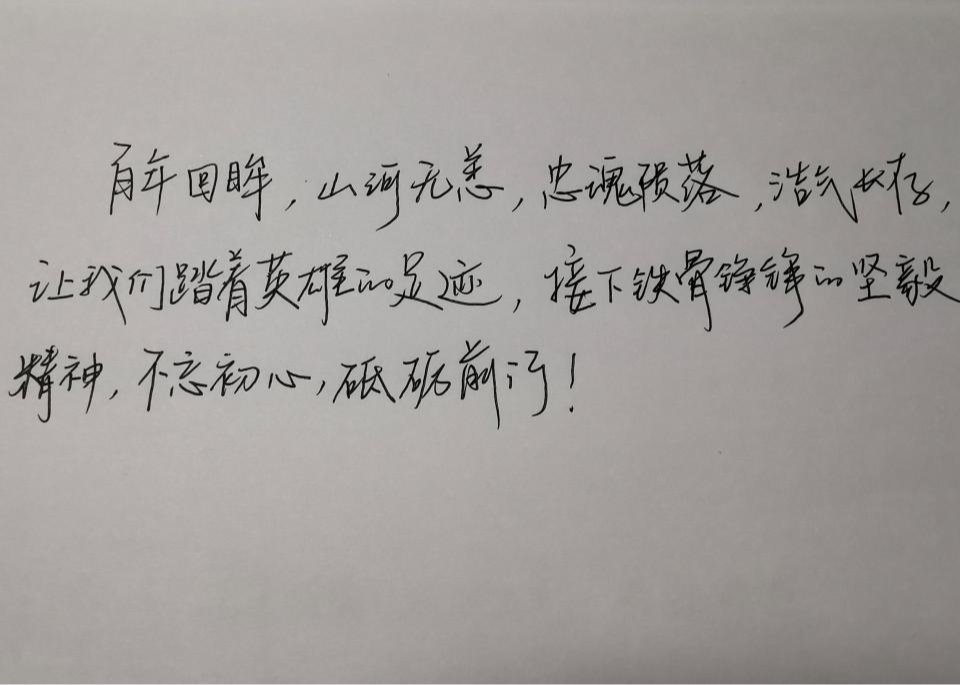 百年回眸，山河无恙，忠魂陨落，浩气长存，
让我们踏着英雄的足迹，接下铁骨铮铮的坚毅
精神，不忘初心，砥砺前行！